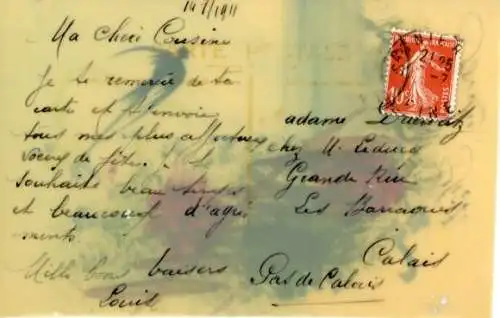 14/1911
Ma cheri Cousine
Je te remercie de ta
carte et t'envoie
tous mes plus affectueux
voeux de fête. Je
souhaite beau temps
et beaucoup d'agré
ments.
Mille bons baisers
Louis
adame
chez M. Leduc
Grande Rue
Les Barraques
Calais
Pas de Calais